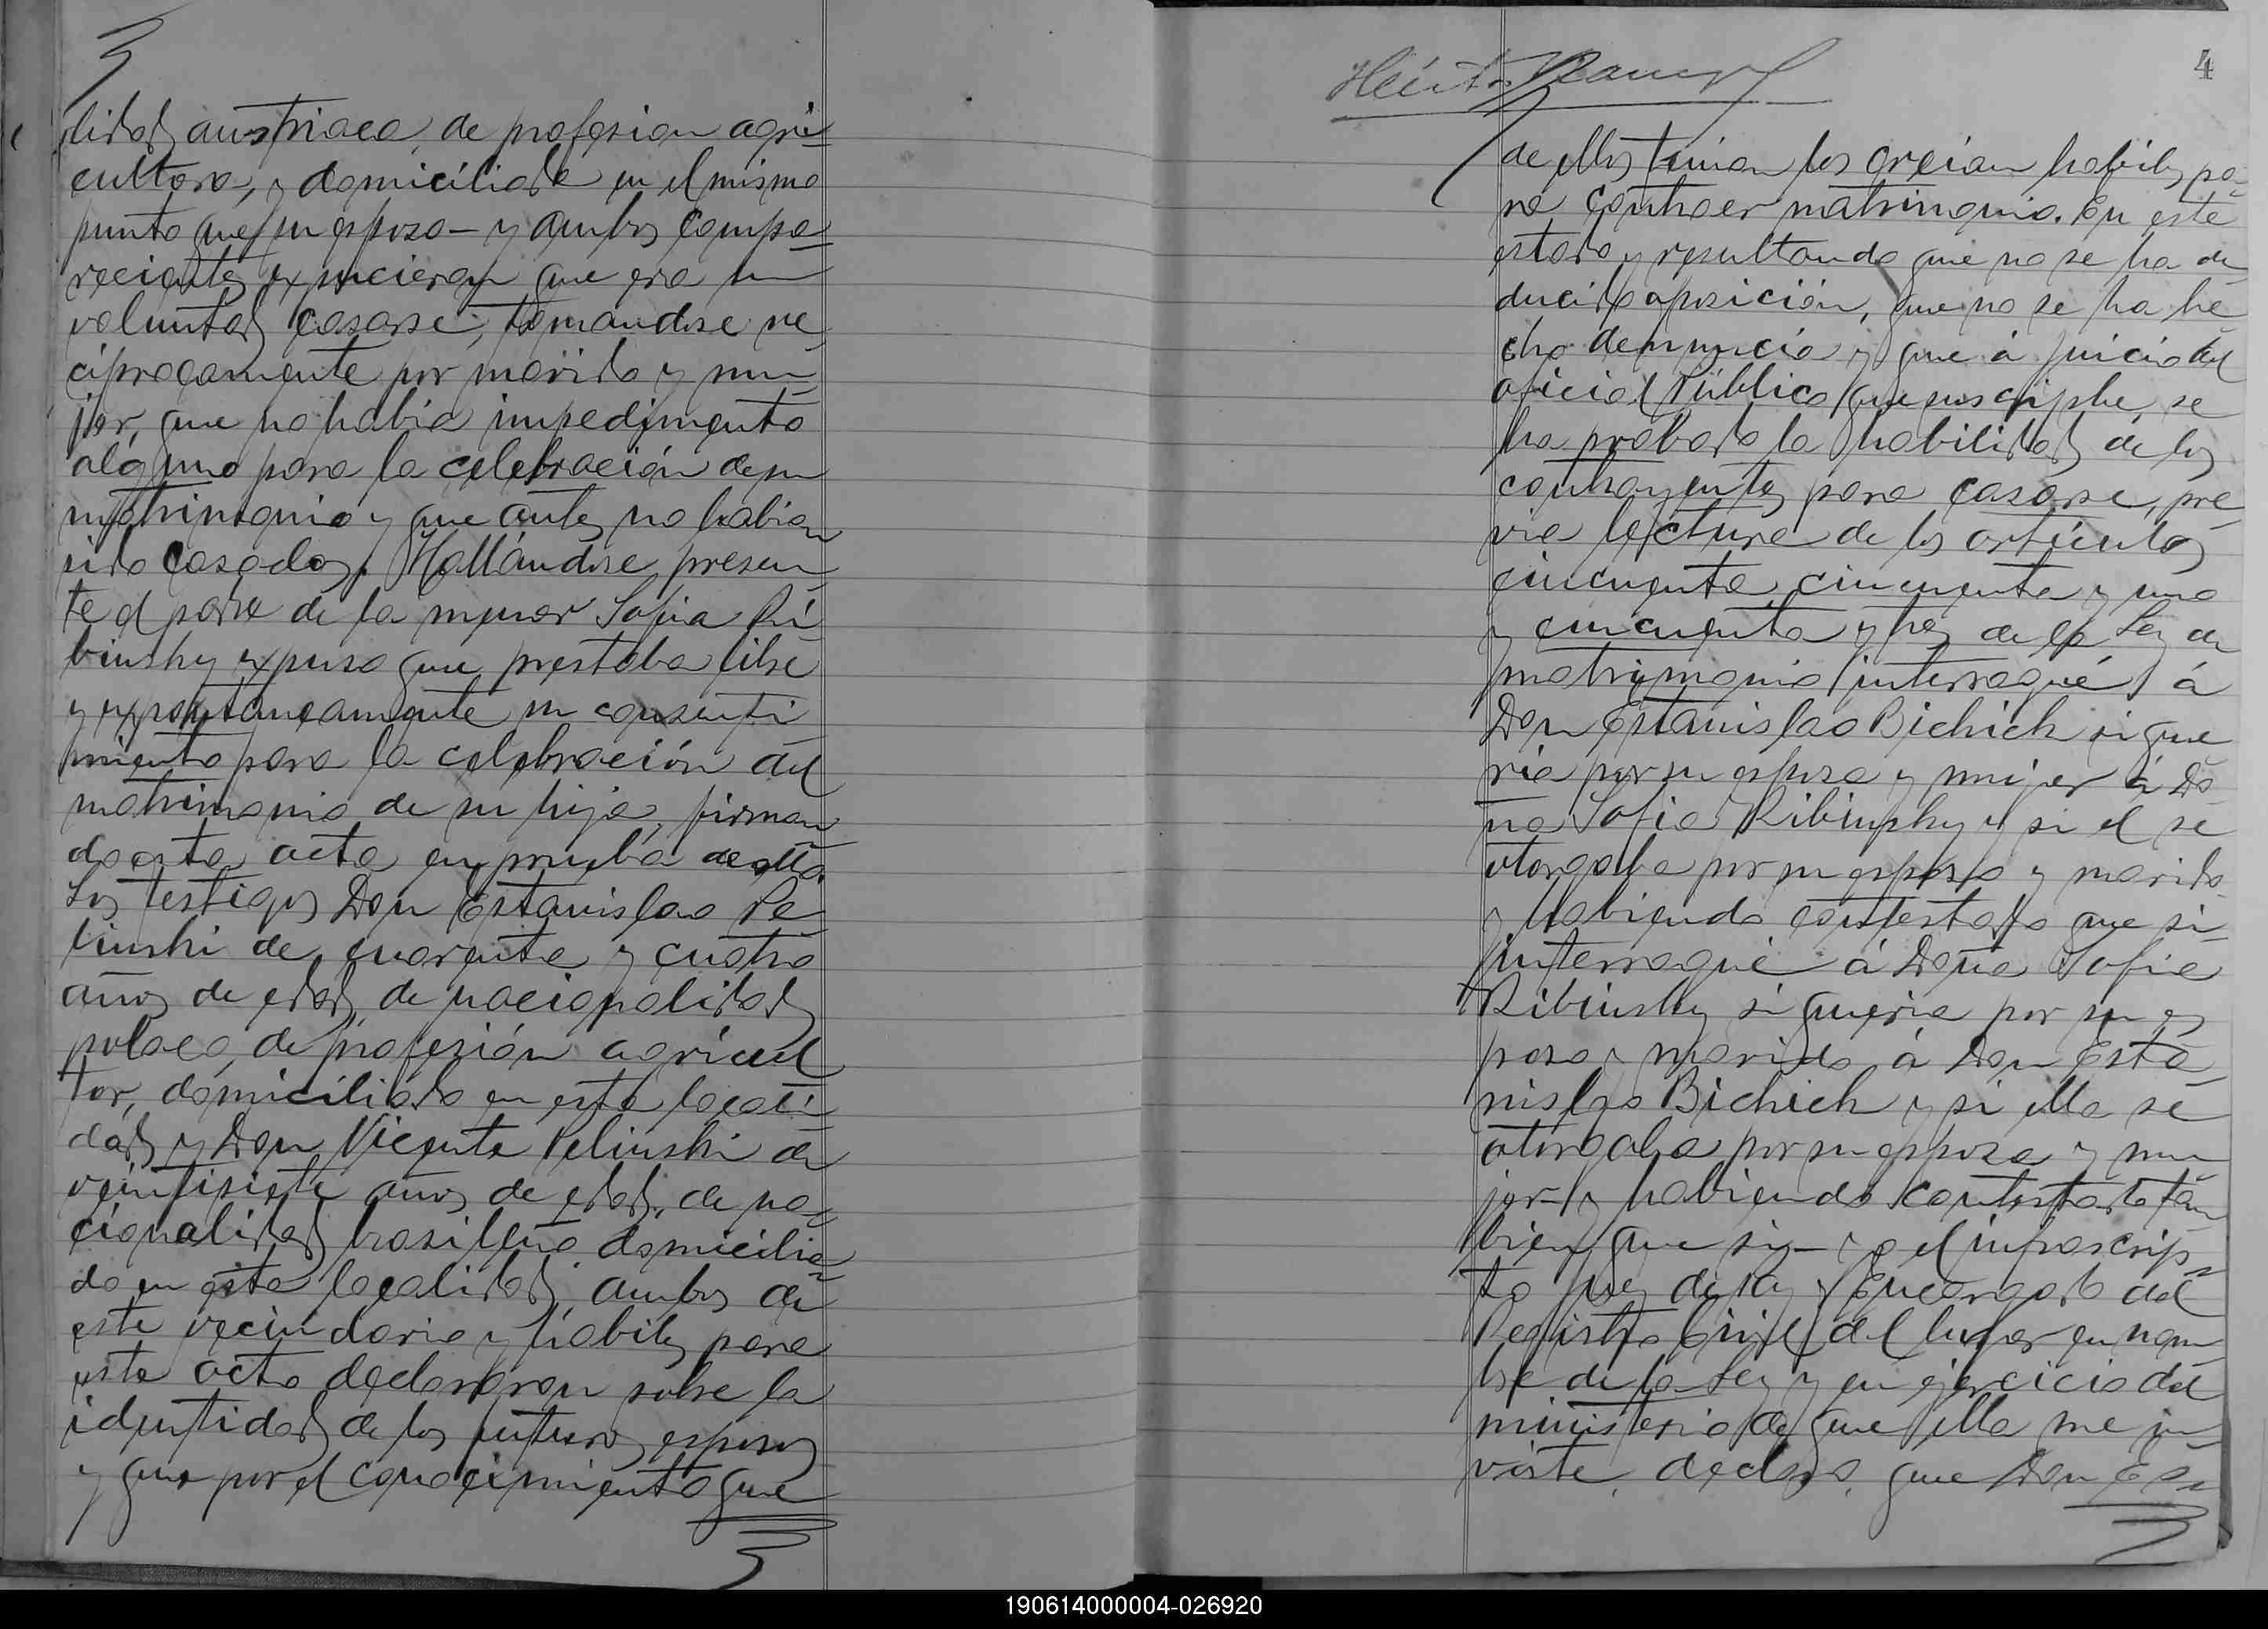 lidad austriaca, de profesion agri-
cultora, y domiciliada en el mismo
punto que su esposo — y ambos compa-
recientes expucieron que era su
voluntad casarse, tomandose re
ciprocamente por marido y mu-
jer, que no habia impedimento
alguno para la celebración de su
matrimonio y que antes no habian
sido casados. Hallándose presen
te el padre de la menor Sofia Ri
binsky expuso que prestaba libre
y expontaneamente su consenti
miento para la celebración del
matrimonio de su hija, firman
do esta acta en prueba de ello.
Los testigos Don Estanislao Pe
linski de cuarenta y cuatro
años de edad, de nacionalidad
polaca, de profesión agricul
tor, domiciliado en esta locali
dad y Don Vicente Pelinski de
veintisiete años de edad, de na-
cionalidad brasileña domicilia
do en esta localidad, ambos de
este vecindario y habiles para
este acto declararon sobre la
identidad de los futuros esposos
y que por el conocimiento que
4
de ellos tenian los creian habiles pa-
ra contraer matrimonio. En este
estado y resultando que no se ha de
ducido oposición, que no se ha he
cho denuncia y que á juicio del
oficial Público que suscribe, se
ha probado la habilidad de los
contrayentes para casarse, pre
via lectura de los artículos
cincuenta, cincuenta y uno
y cincuenta y tres de la Ley de
matrimonio interrogué á
Don Estanislao Bichich si que
ria por su esposa y mujer á Do
ña Sofia Ribinsky y si el se
otorgaba por su esposo y marido
y habiendo contestado que si-
interrogué á Doña Sofia
Ribinsky si queria por su es
poso y marido á Don Esta
nislao Bichich y si ella se
otorgaba por su esposa y mu
jer — y habiendo contestado tam
bien que si — yo el infrascrip-
to Juez de Paz y Encargado del
Registro Civil del lugar en nom
bre de la Ley y en ejercicio del
ministerio de que ella me in-
viste, declaro, que Don Es-
190614000004-026920